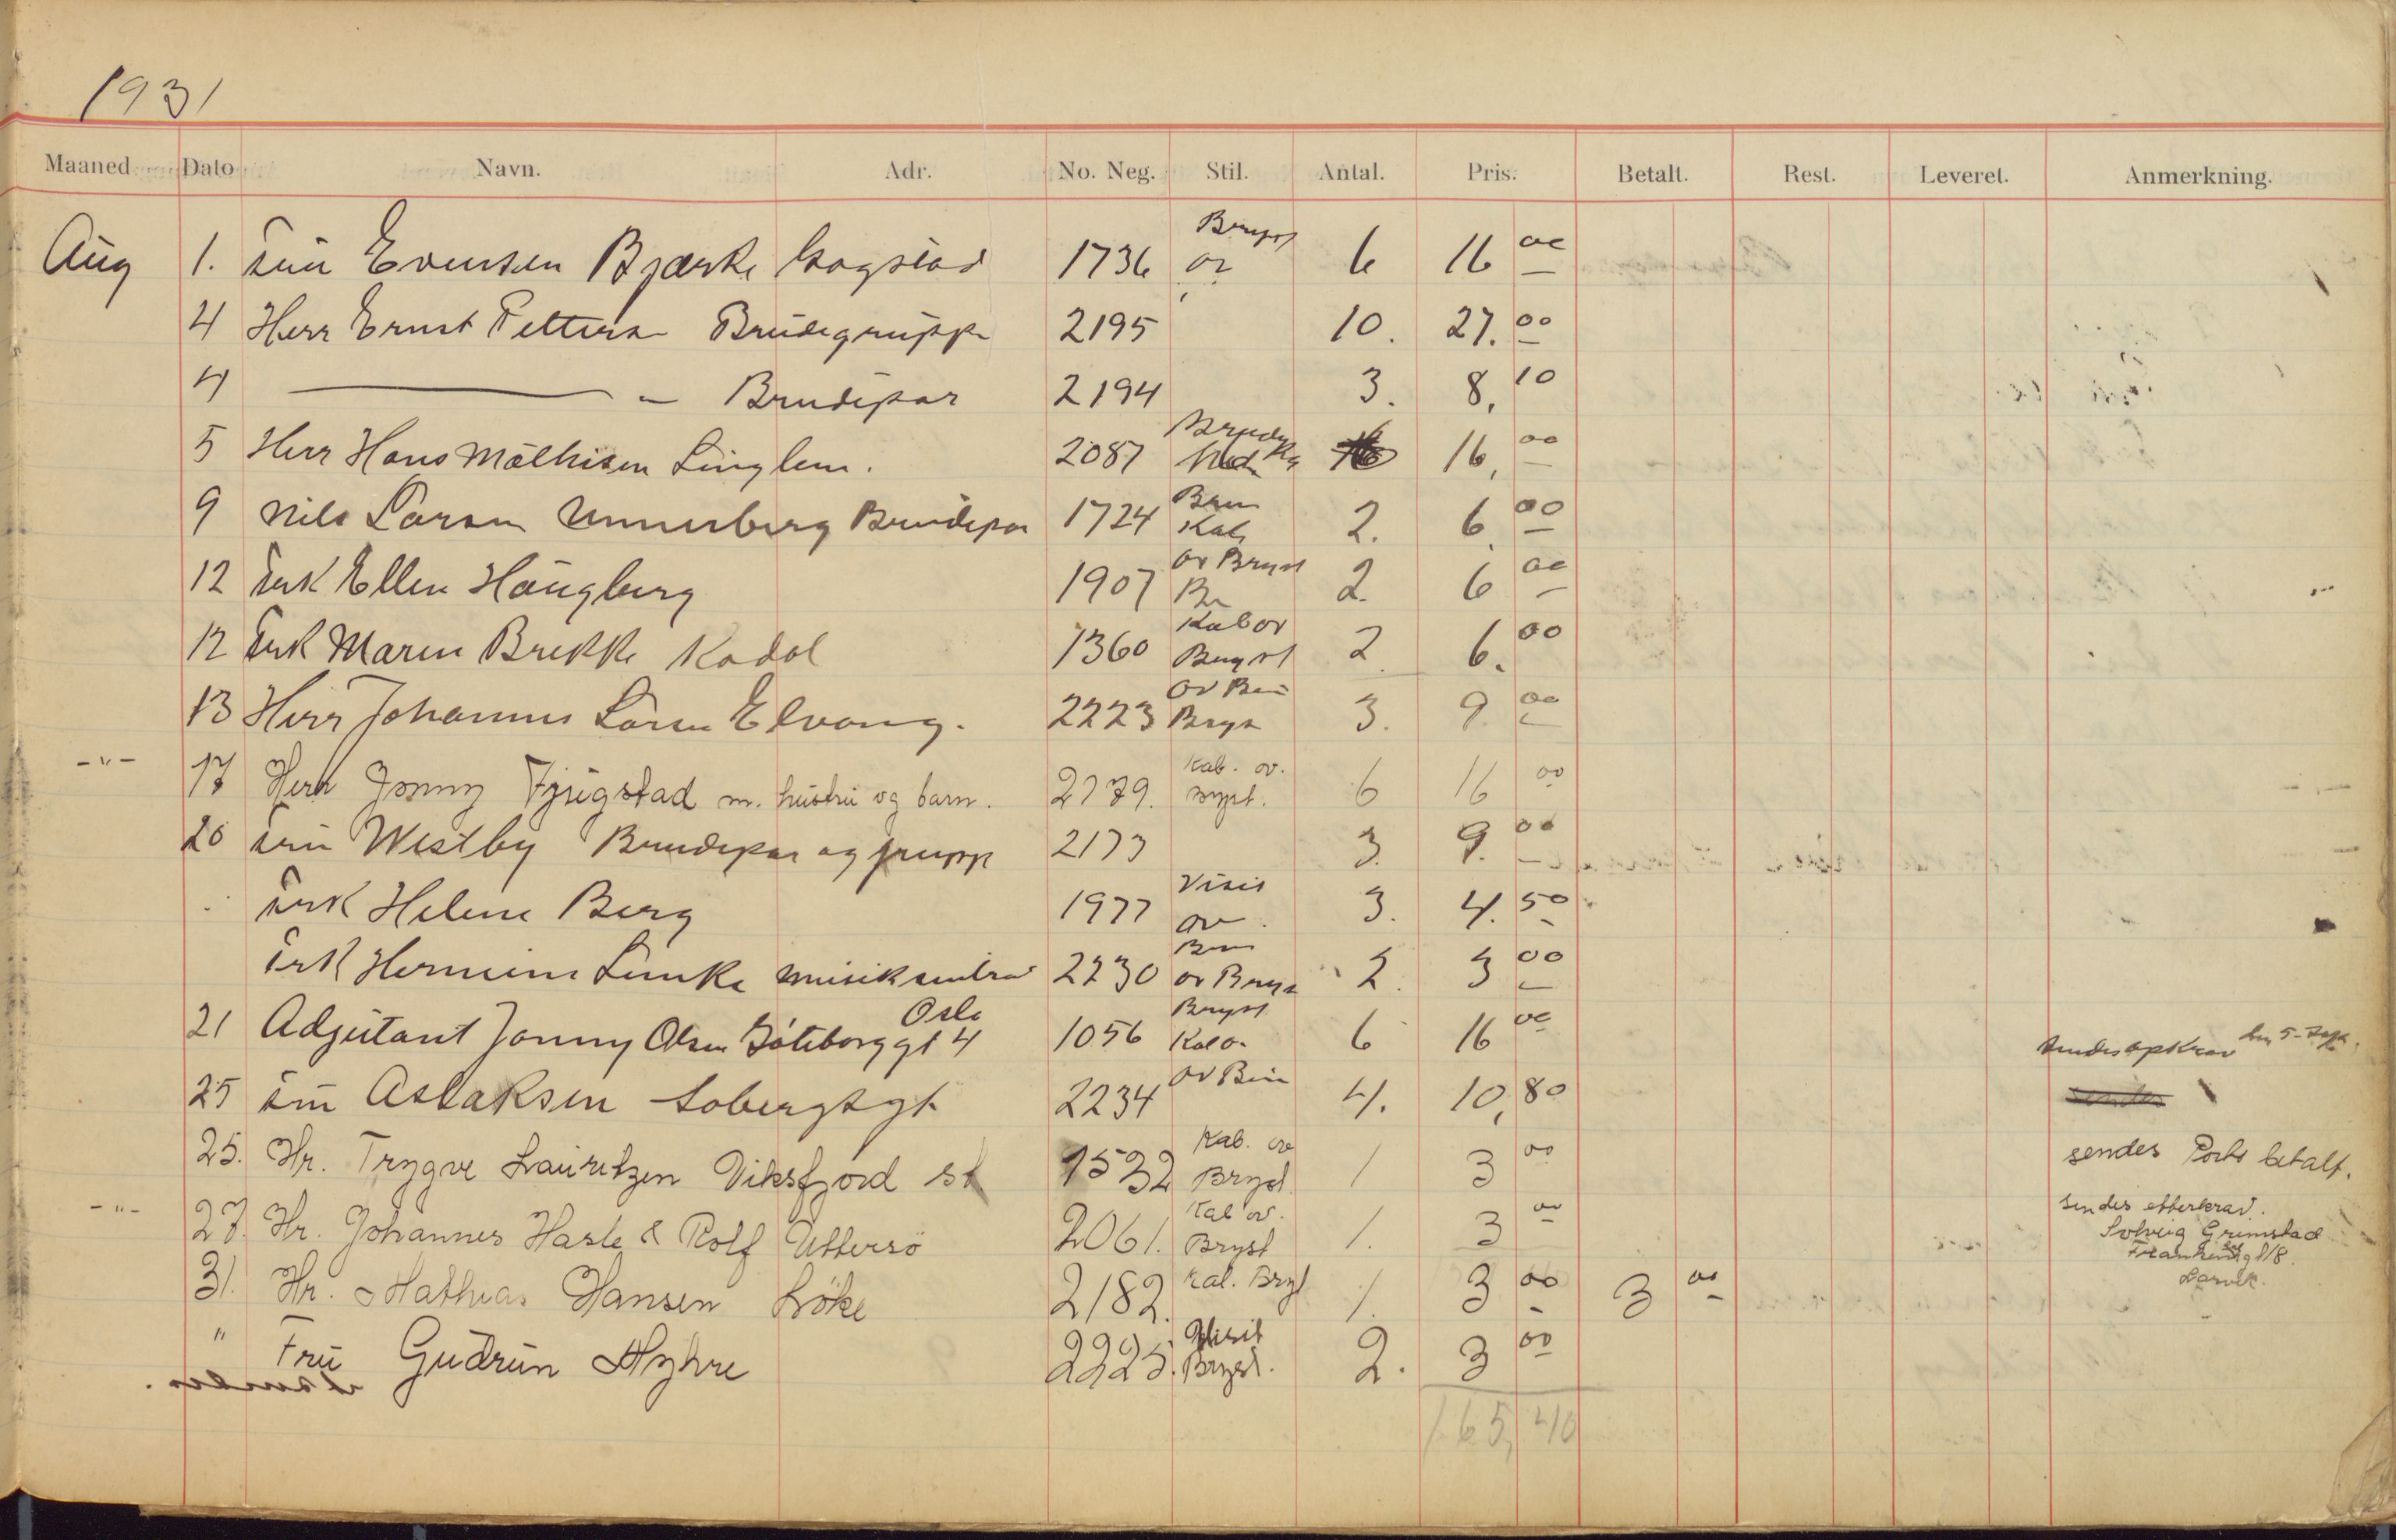 1931
Maaned Dato Navn. Adr. No. Neg. Stil. Antal. Pris. Betalt. Rest. Leveret. Anmerkning.
Aug 1. Evensen Bjærke 1736 Bryst 6 16 00
4 Herr Ernst Petterson Brudegruppe 2195 10. 27.00
4 — " — Brudepar 2194 3. 8,10
5 Herr Hans Mathisen 2087 16,00
9 Nils Larsen Unnerberg Brudepar 1724 Kab 2. 6.00
12 Frk Ellen Haugberg 1907 ov Bryst 2. 6 00
12 Frk Maren Brekke Kodal 1360 Kab ov Bryst 2 6.00
13 Herr Johannes Larsen Elvang. 2223 Bryst 3. 9.00
-"- 17 Herr Jonny Fjugstad m. hustru og barn. 2179. Kab. ov. Bryst. 6 16 00
20 Westby Brudepar og grupp 2173 3. 9.00
Frk Helene Berg 1977 Visit ov 3. 4.50
Frk 2230 ov Bryst 2. 3 00
21 Adjutant Jonny Olsen Göteborggt 4 Oslo 1056 Bryst 6 16 00
25 Aslaksen 2234 4. 10,80
25. Hr. Trygve Lauritzen Viksfjord st 1532 Kab. ov Bryst 1 3 00 sendes Porto betalt.
-"- 27. Hr. Johannes Hasle & Rolf Uttersö 2061. Kab ov. Bryst 1. 3 00 sendes etterkrav.
Solveig Grimstad
Larvik.
31. Hr. Mathias Hansen Löke 2182. Kab. Bryst 1. 3 00 3 00
" Fru Gudrun Myhre 2225. Visit Bryst. 2. 3 00
165,40